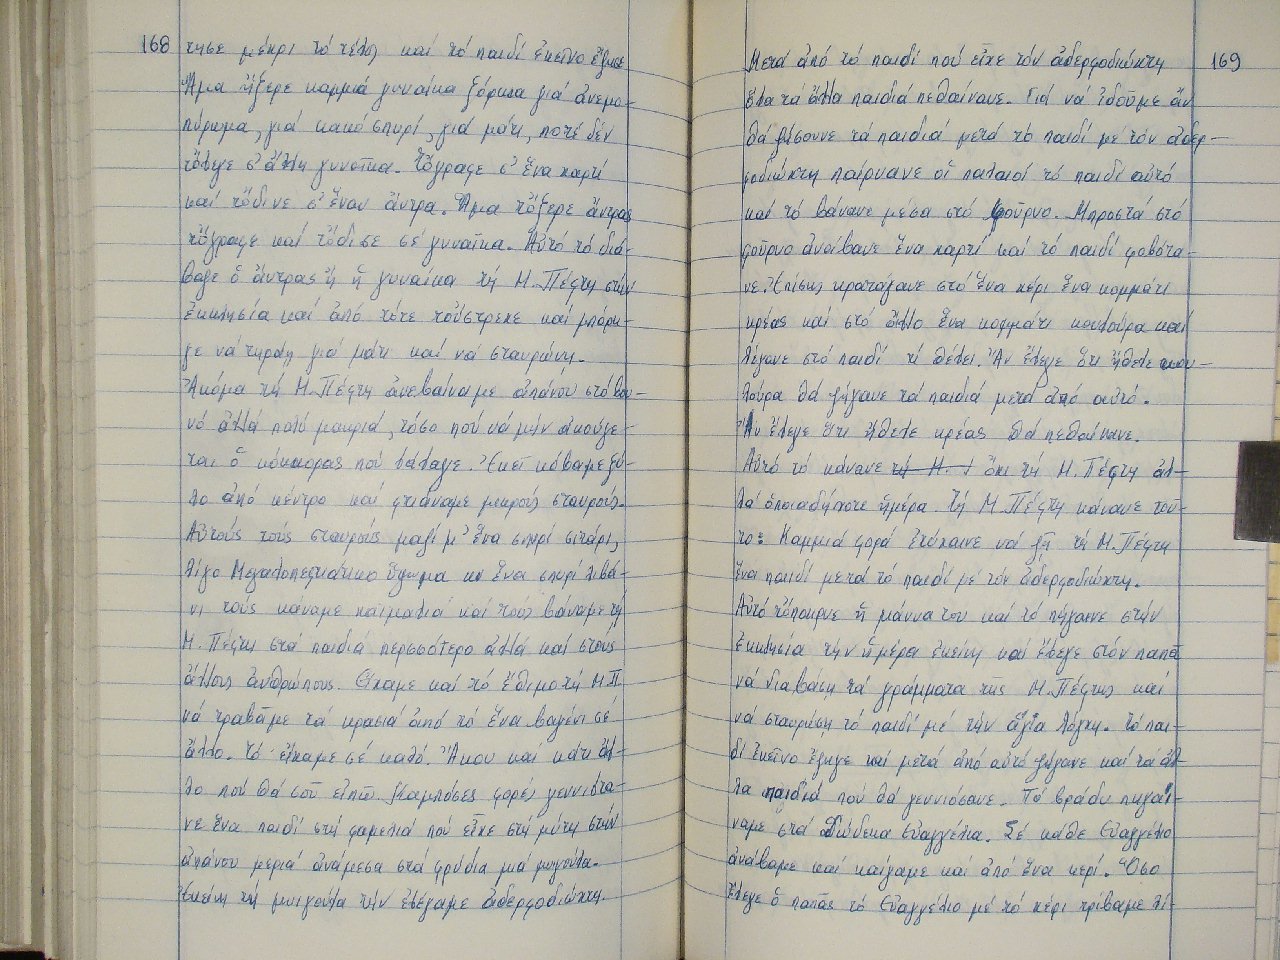 168
τησε μέχρι τό τέλος καί τό παιδί ἐκεῖνο ἔζησε
Ἅμα ἤξερε καμμιά γυναίκα ξόρκια γιά ἀνεμο-
πύρωμα, γιά κακό σπυρί, γιά μάτι, ποτέ δέν
τὄλεγε σ' ἄλλη γυναῖκα. Τὄγραφε σ' ἕνα χαρτί
καί τὄδινε σ' ἕναν ἄντρα. Ἅμα τὄξερε ἄντρας
τὄγραφε καί τὄδισε σέ γυναῖκα. Αὐτό τό διά-
βαζε ὁ ἄντρας ἤ ἡ γυναίκα τή Μ. Πέφτη στήν
ἐκκλησία καί ἀπό τότε τοὔστρεχε καί μπόρη-
γε νά τηράη γιά μάτι καί νά σταυρώνη.
Ἀκόμα τή Μ. Πέφτη ἀνεβαίναμε ἀπάνου στό βου-
νό ἀλλά πολύ μακριά, τόσο πού νά μήν ἀκούγε-
ται ὁ κόκκορας πού λάλαγε. Ἐκεῖ κόβαμε ξύ-
λο ἀπό κέντρο καί φτιάναμε μικρούς σταυρούς.
Αὐτούς τούς σταυρούς μαζί μ' ἕνα σπυρί σιτάρι,
λίγο Μεγαλοπεφτιάτικο ὕψωμα κι ἕνα σπυρί λιβά-
νι τούς κάναμε χαϊμαλιά καί τούς βάναμε τή
Μ. Πέφτη στά παιδιά περσσότερο ἀλλά καί στούς
ἄλλους ἀνθρώπους. Εἴχαμε καί τό ἔθιμο τή Μ.Π.
νά τραβᾶμε τά κρασιά ἀπό τό ἕνα βαγένι σέ
ἄλλο. Τό εἴχαμε σέ καλό. Ἄκου καί κάτι ἄλ-
λο πού θά σοῦ εἰπῶ. Καμπόσες φορές γεννιότα-
νε ἕνα παιδί στή φαμελιά πού εἶχε στή μύτη στήν
ἀπάνου μεριά ἀνάμεσα στά φρύδια μιά μυγούλα.
Ἐκείνη τή μυιγούλα τήν ἐλέγαμε ἀδερφοδιώχτη.
169
Μετά ἀπό τό παιδί πού εἶχε τόν ἀδερφοδιώχτη
ὅλα τά ἄλλα παιδιά πεθαίνανε. Γιά νά ἰδοῦμε ἄν
θά ζήσουνε τά παιδιά μετά τό παιδί μέ τόν ἀδερ-
φοδιώχτη παίρνανε οἱ παλαιοί τό παιδί αὐτό
καί τό βάνανε μέσα στό φοῦρνο. Μπροστά στό
φοῦρνο ἀνοίβανε ἕνα χαρτί καί τό παιδί φοβότα-
νε. Ἐπίσης κρατάγανε στό ἕνα χέρι ἕνα κομμάτι
κρέας καί στό ἄλλο ἕνα κομμάτι κουλούρα καί
λέγανε στό παιδί τί θέλει. Ἄν ἔλεγε ὅτι ἤθελε κου-
λούρα θά ζήγανε τά παιδιά μετά ἀπό αὐτό.
Ἄν ἔλεγε ὅτι ἤθελε κρέας θά πεθαίνανε.
Αὐτό τό κάνανε τή Μ. ὄχι τή Μ. Πέφτη ἀλ-
λά ὁποιαδήποτε ἡμέρα. Τή Μ. Πέφτη κάνανε τοῦ-
το: Καμμιά φορά ἐτύχαινε νά ζῆ τή Μ. Πέφτη
ἕνα παιδί μετά τό παιδί μέ τόν ἀδερφοδιώχτη.
Αὐτό τὄπαιρνε ἡ μάννα του καί τό πήγαινε στήν
ἐκκλησία τήν ἡμέρα ἐκείνη καί ἔλεγε στόν παπᾶ
νά διαβάση τά γράμματα τῆς Μ. Πέφτης καί
νά σταυρώση τό παιδί μέ τήν ἁγία λόγχη. Τό παι-
δί ἐκεῖνο ἔζηγε καί μετά ἀπό αὐτό ζήγανε καί τά ἄλ-
λα παιδιά πού θά γεννιόσανε. Τό βράδυ πηγαί-
ναμε στά Δώδεκα Εὐαγγέλια. Σέ κάθε Εὐαγγέλιο
ἀνάβαμε καί καίγαμε καί ἀπό ἕνα κερί. Ὅσο
ἔλεγε ὁ παπᾶς τό Εὐαγγέλιο μέ τό χέρι τρίβαμε λί-